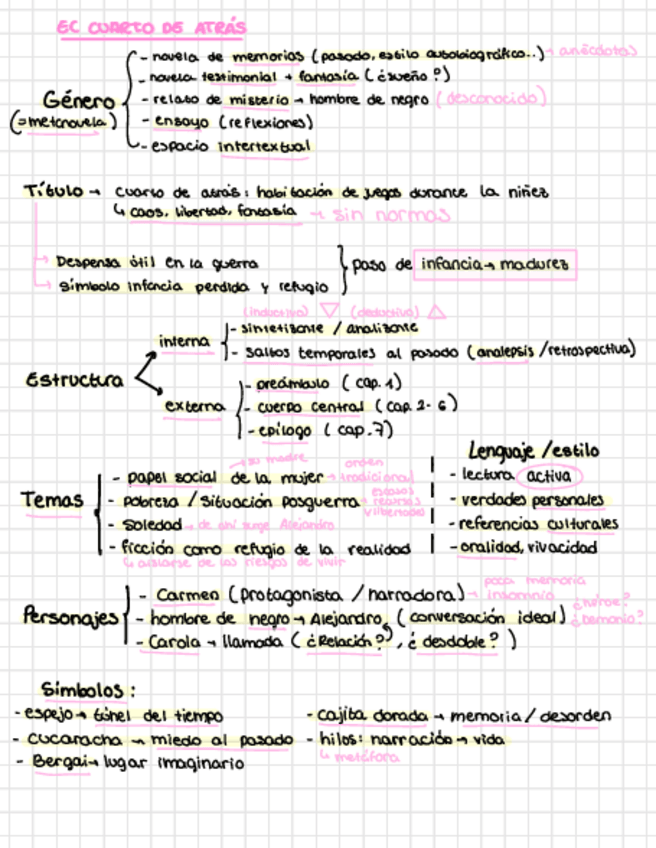 EL CUARTO DE ATRÁS
- novela de memorias (pasado, estilo autobiográfico..) → anécdotas
- novela testimonial + fantasía (¿sueño?)
Género - relato de misterio → hombre de negro (desconocido)
(=metanovela) - ensayo (reflexiones)
- espacio intertextual
Título → cuarto de atrás: habitación de juegos durante la niñez
↳ caos, libertad, fantasía → sin normas
→ Despensa útil en la guerra
→ símbolo infancia perdida y refugio
paso de infancia → madurez
(inductiva) ▽ (deductiva) △
interna - sintetizante / analizante
- saltos temporales al pasado (analepsis/retrospectiva)
Estructura
externa - preámbulo (cap.1)
- cuerpo central (cap. 2-6)
- epílogo (cap.7)
Temas
→ su madre
- papel social de la mujer → orden tradicional
- pobreza / situación posguerra →
- soledad → de ahí surge Alejandro
- ficción como refugio de la realidad
↳ aislarse de los riesgos de vivir
Lenguaje /estilo
- lectura activa
- verdades personales
- referencias culturales
- oralidad, vivacidad
Personajes
- Carmen (protagonista / narradora) → poca memoria insomnio
- hombre de negro → Alejandro (conversación ideal) ¿héroe? ¿demonio?
- Carola → llamada (¿Relación?), ¿desdoble?)
Símbolos:
- espejo → túnel del tiempo
- cucaracha → miedo al pasado
- Bergai → lugar imaginario
- cajita dorada → memoria / desorden
- hilos: narración → vida
↳ metáfora